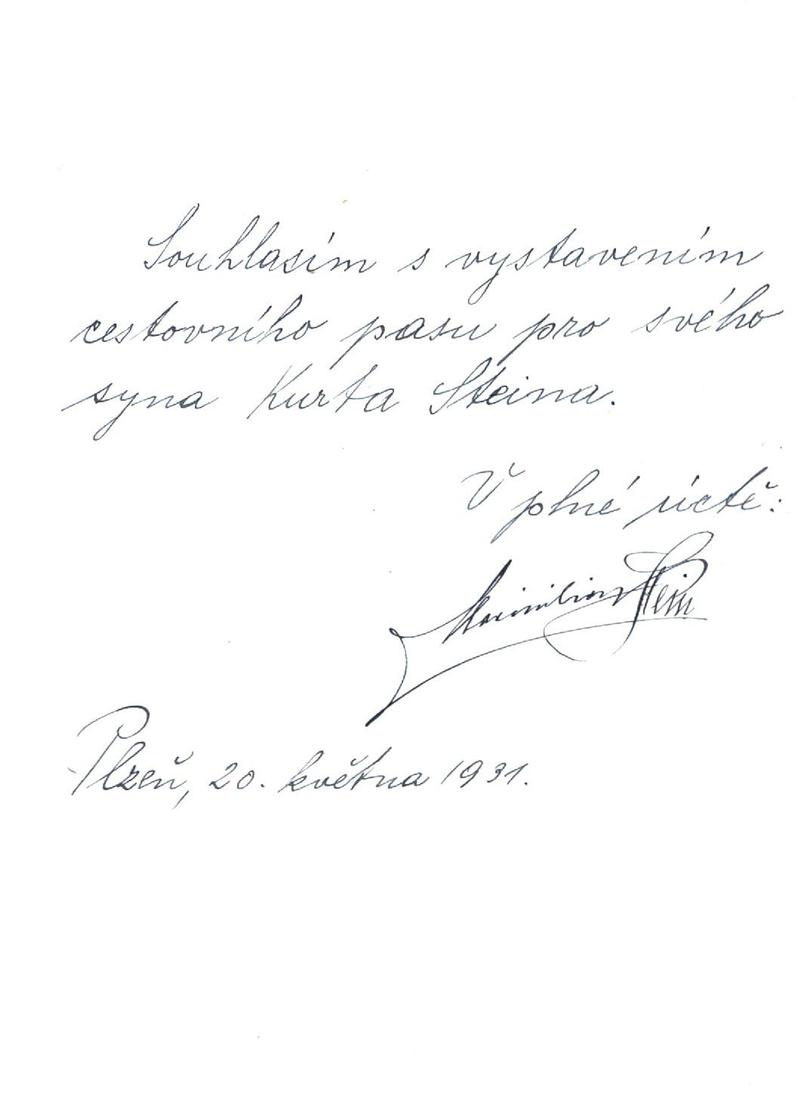 Souhlasím s vystavením
cestovního pasu pro svého
syna Kurta Steina.
V plné úctě:
Maximilian Stein
Plzeň, 20. května 1931.